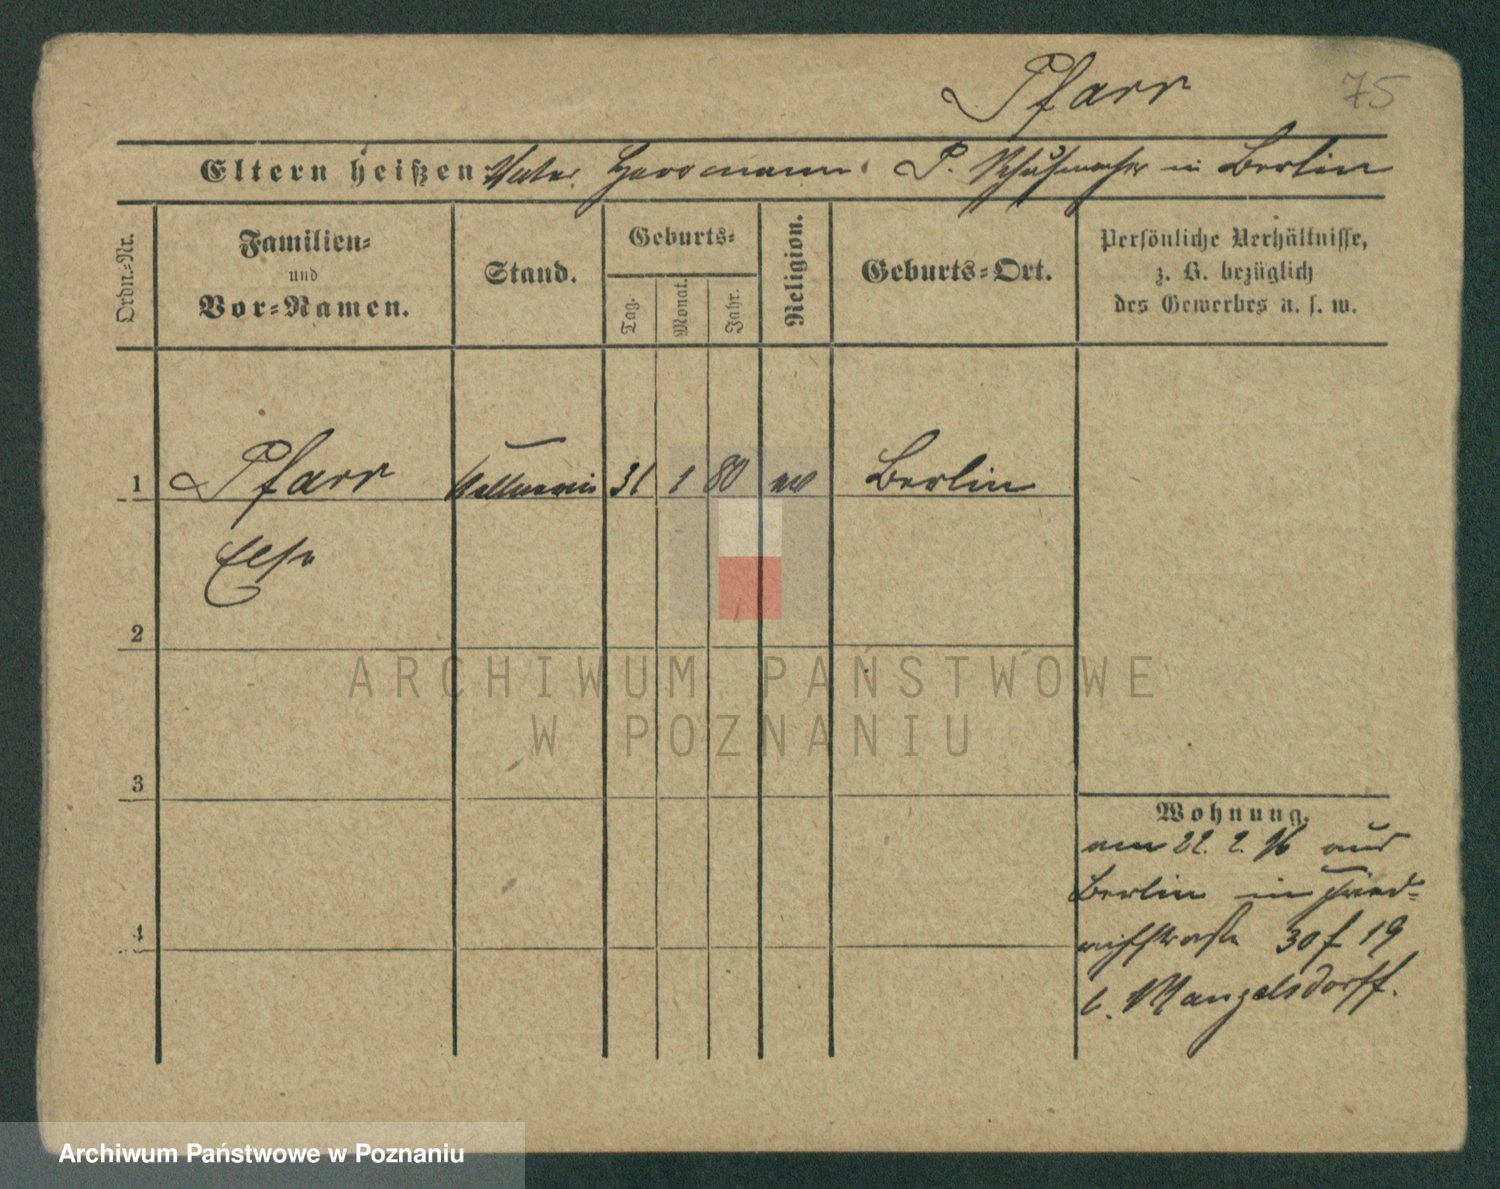 Pfarr
75
Eltern heißen: Vater Herrmann P. Schuhmacher in Berlin
Ordn.-Nr.
Familien-
und
Vor-Namen.
Stand.
Geburts-
Tag.
Monat.
Jahr.
Religion.
Geburts-Ort.
Persönliche Verhältnisse,
z. B. bezüglich
des Gewerbes u. s. w.
1 Pfarr Kellnerin 31 1 80 ev Berlin
Else
2
3
4
Wohnung.
am 22. 2. 96 aus
Berlin in Fried-
richstraße 30 19
b. Mangelsdorff.
ARCHIWUM PAŃSTWOWE
W POZNANIU
Archiwum Państwowe w Poznaniu